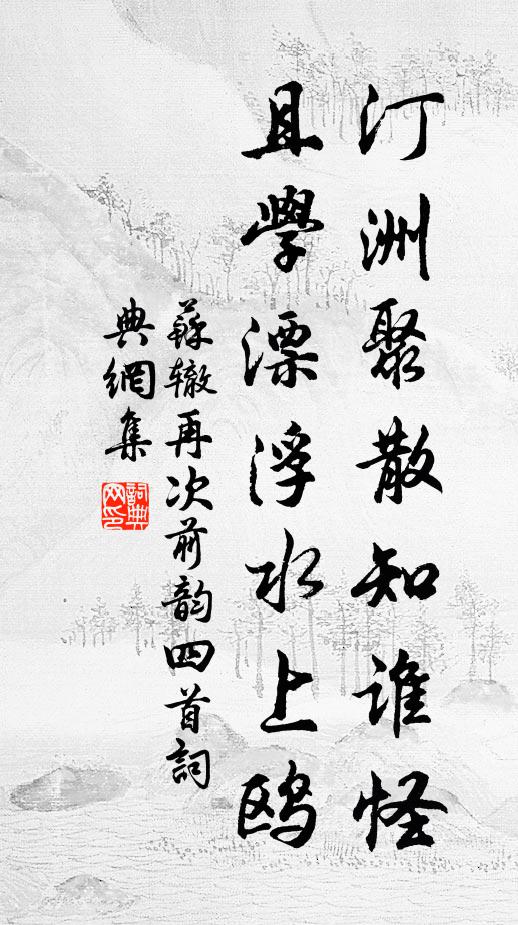 汀洲聚散知谁怪
且學漂浮水上鸥
蘇辙再次前韵四首詞
典網集
詞典
网印